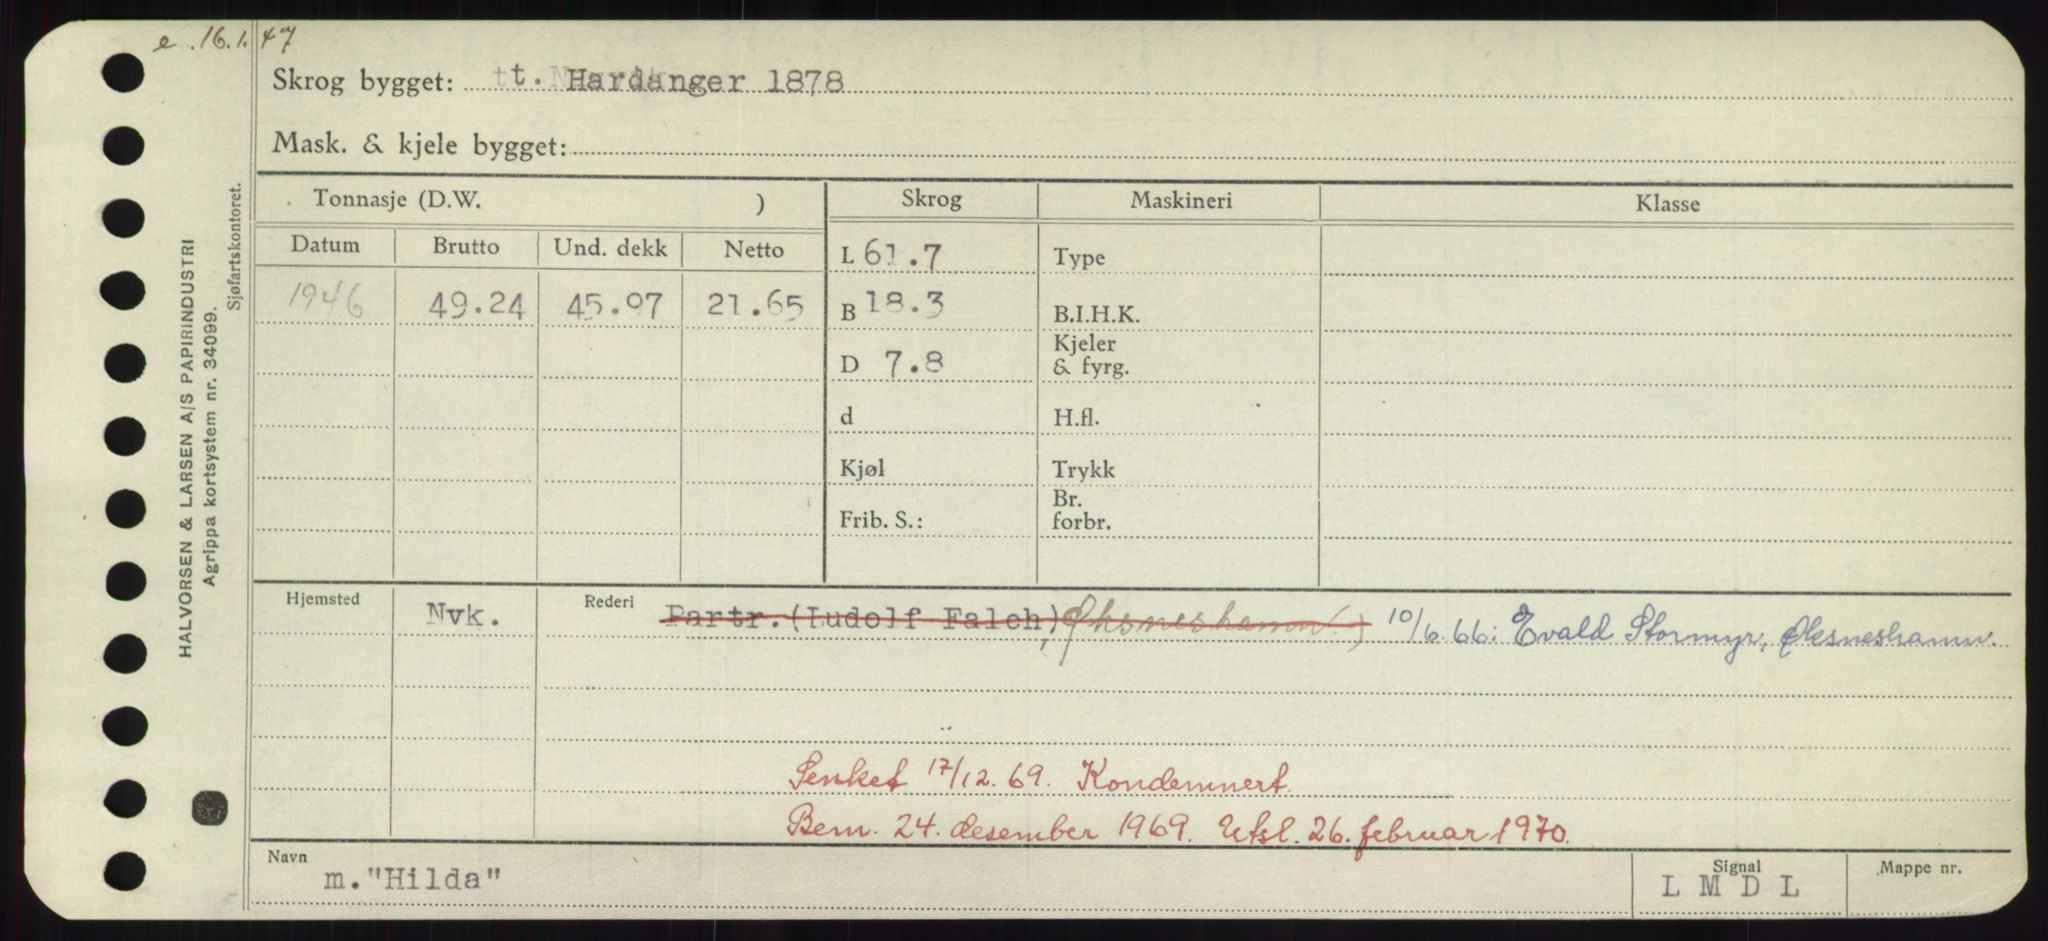 e. 16.1.47
Skrog bygget: tt. Hardanger 1878
Mask. & kjele bygget:
Tonnasje (D.W. ) Skrog Maskineri Klasse
Datum Brutto Und. dekk Netto L 61.7 Type
1946 49.24 45.97 21.65 B 18.3 B.I.H.K.
D 7.8 Kjeler & fyrg.
d H.fl.
Kjøl Trykk
Frib. S.: Br. forbr.
Hjemsted Nvk. Rederi Partr. (Ludolf Falch), Øksneshamn.) 10/6.66: Evald Stormyr, Øksneshamn.
Senket 17/12.69. Kondemnert.
Bem. 24. desember 1969. Utsl. 26. februar 1970.
Navn m. "Hilda" Signal L M D L Mappe nr.
HALVORSEN & LARSEN A/S PAPIRINDUSTRI
Agrippa kortsystem nr. 34099.
Sjøfartskontoret.